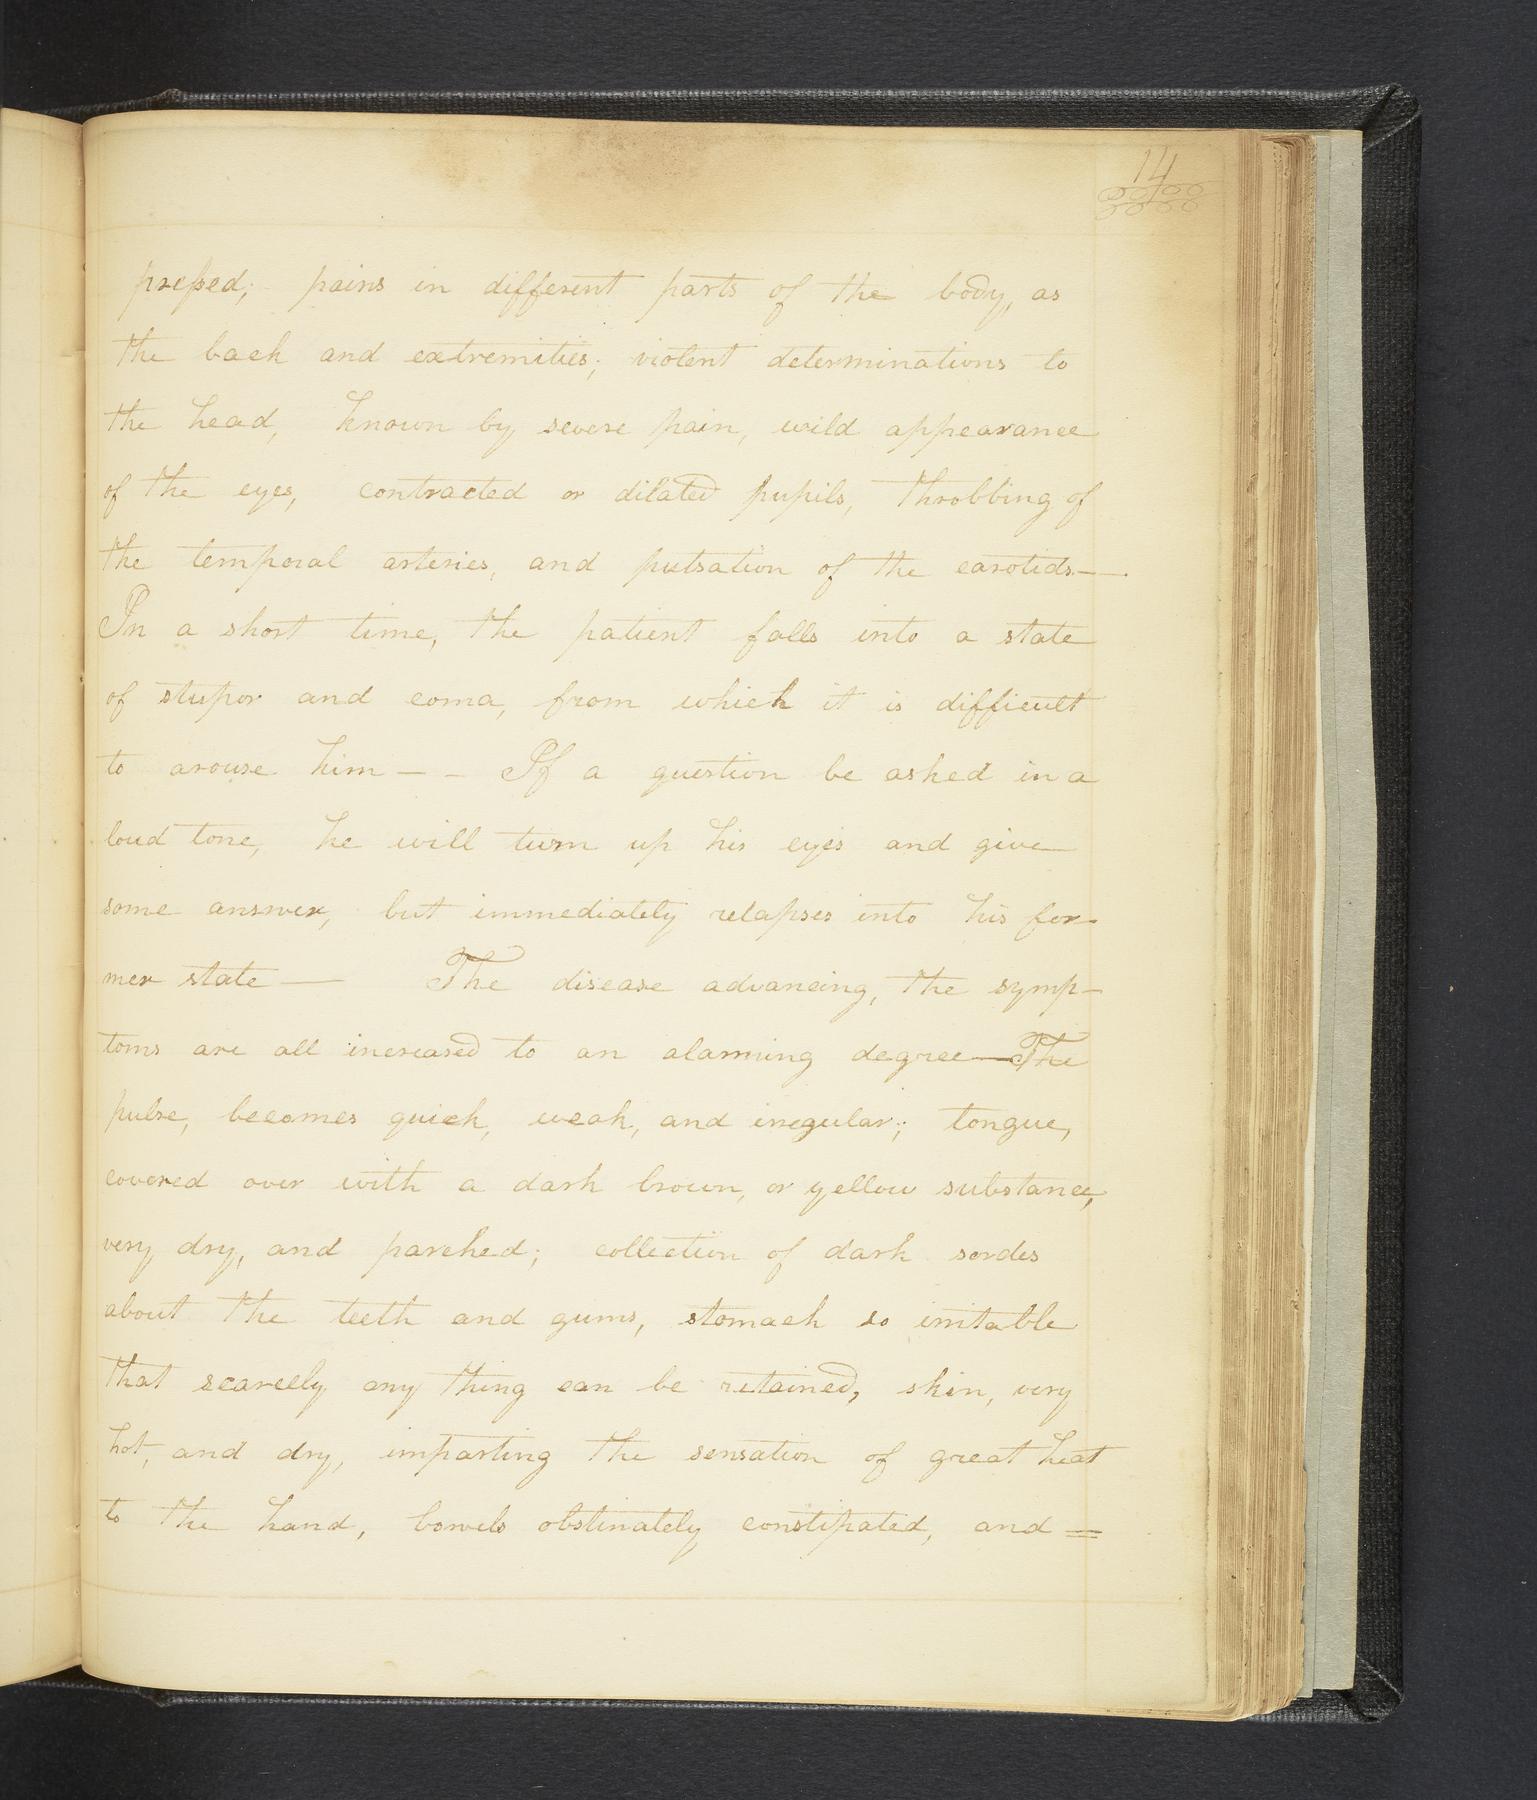 14
preſsed; pains in different parts of the body, as
the back and extremities; violent determinations to
the head, known by severe pain, wild appearance
of the eyes, contracted or dilated pupils, throbbing of
the temporal arteries, and pulsation of the carotids—
In a short time, the patient falls into a state
of stupor and coma, from which it is difficult
to arouse him — - If a question be asked in a
loud tone, he will turn up his eyes and give
some answer, but immediately relapses into his for-
mer state — The disease advancing, the symp-
toms are all increased to an alarming degree—The
pulse, becomes quick, weak, and irregular; tongue,
covered over with a dark brown, or yellow substance,
very dry, and parched; collection of dark sordes
about the teeth and gums, stomach so irritable
that scarcely any thing can be retained, skin, very
hot, and dry, imparting the sensation of great heat
to the hand, bowels obstinately constipated, and =